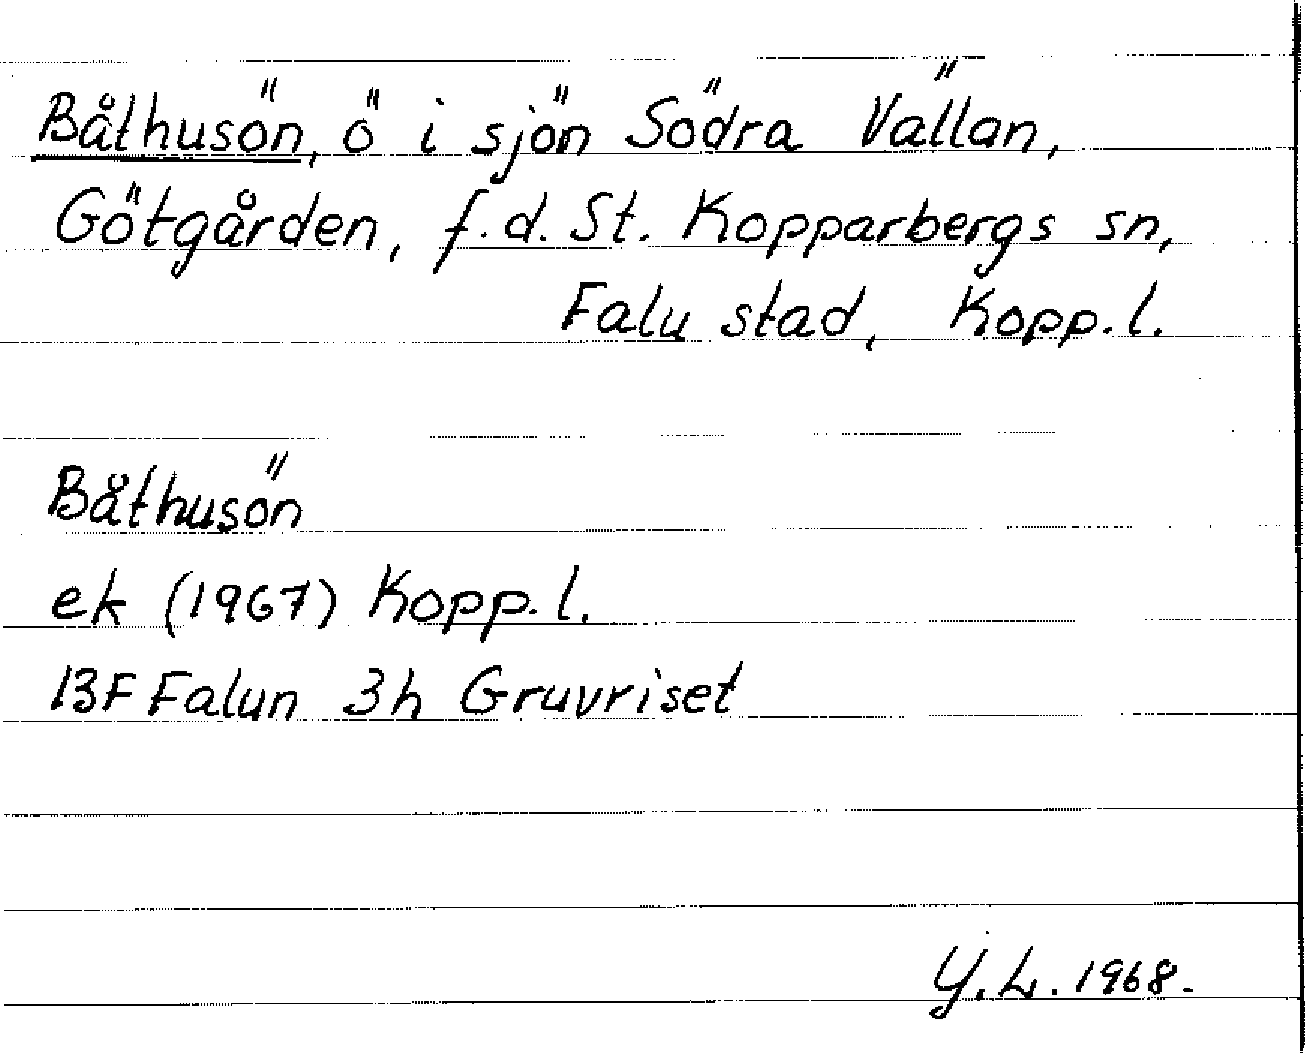 Båthusön, ö i sjön Södra Vällan,
Götgården, f.d. St. Kopparbergs sn,
Falu stad, Kopp. l.
Båthusön
ek (1967) Kopp. l.
13F Falun 3h Gruvriset
Y. L. 1968.